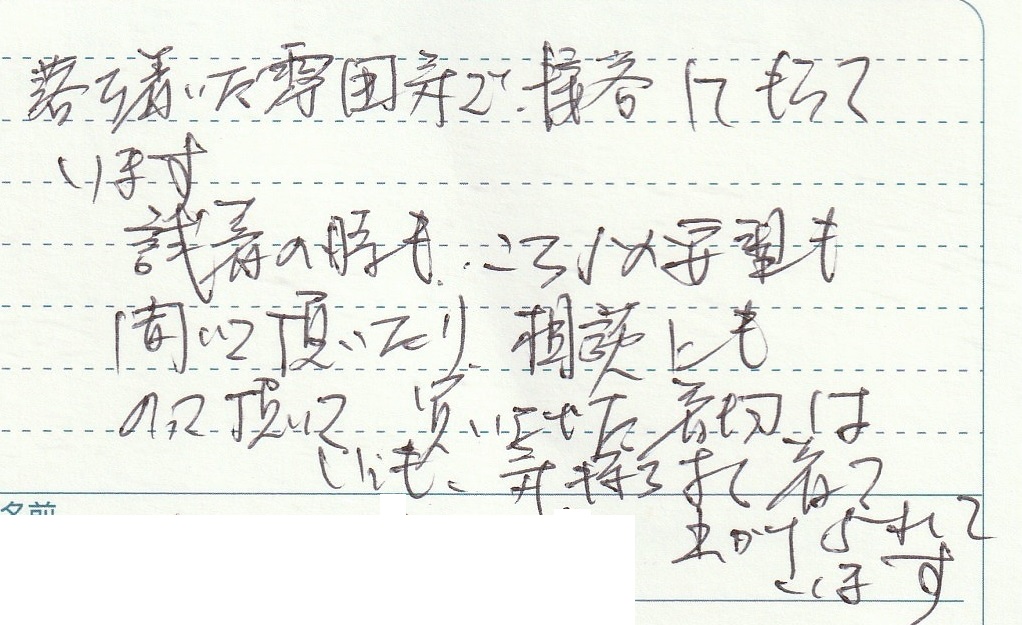 落ち着いた雰囲気で、接客してもらって
います
試着の時も、こちらの要望も
聞いて頂いたり、相談にも
のって頂いて 買いました 着物は
いつも、気持ちよく着て
出かけられて
います
名前